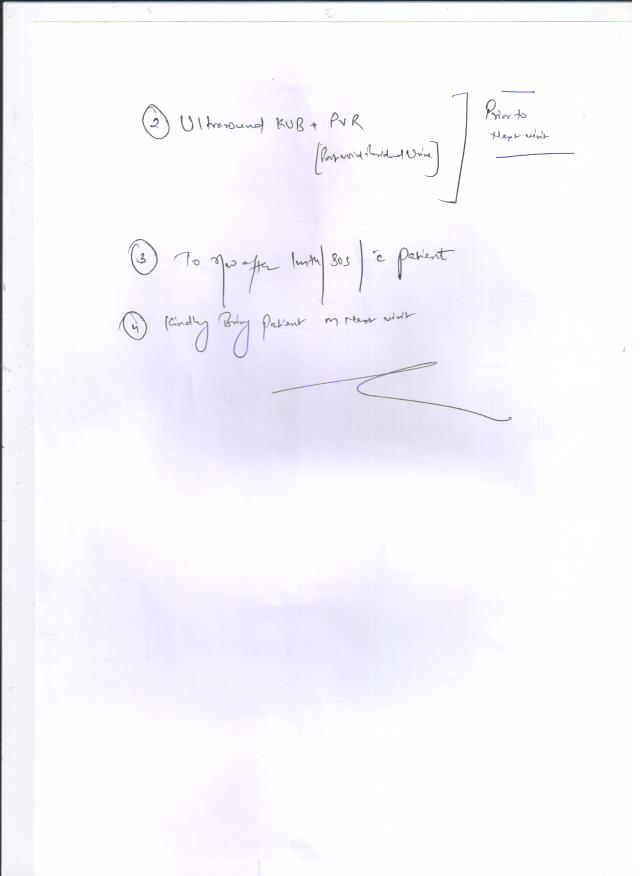 ② Ultrasound KUB + PVR
[Post void Residual Urine]
Prior to
Next visit
③ To r/w after 1 mth / SOS / c̄ patient
④ Kindly Bring Patient on Next visit